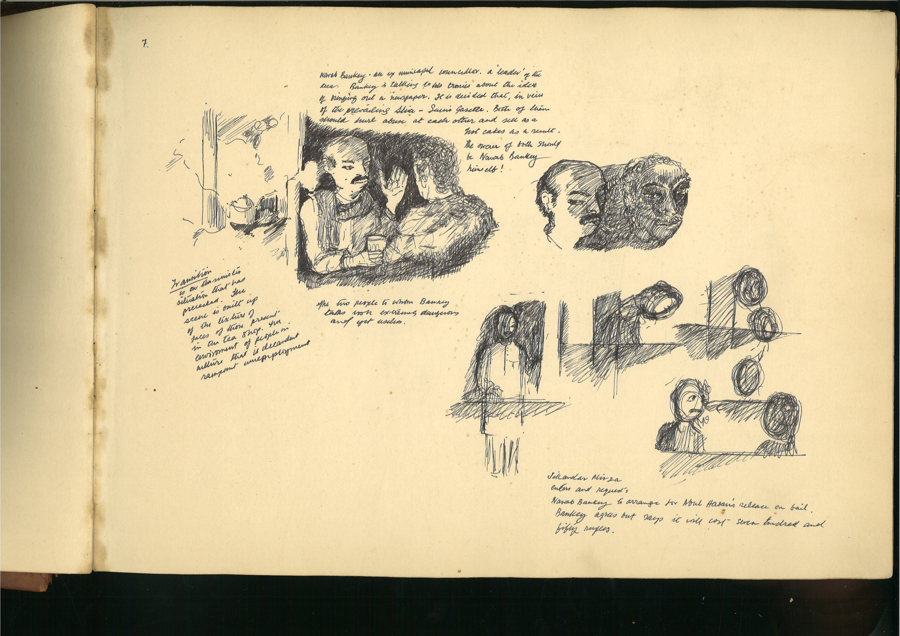 7.
Nawab Bankey - an ex municipal councillor. a 'leader' of the
area. Bankey is talking to his cronies about the idea
of bringing out a newspaper. It is decided that, in vein
of the prevailing Shia - Sunni Gazette. Both of them
should hurl abuse at each other and sell as a
hot cakes as a result.
The owner of both should
be Nawab Bankey
himself!
Transition
is on the
situation that has
preceded. The
scene is built up
of the texture of
faces of those present
in the tea shop. The
environment of people in
milieu that is decadent
rampant unemployment
The two people to whom Bankey
talks look extremely dangerous
and yet useless.
Sikandar Mirza
enters and requests
Nawab Bankey to arrange for Hasan's release on bail.
Bankey agrees but says it will cost seven hundred and
fifty rupees.